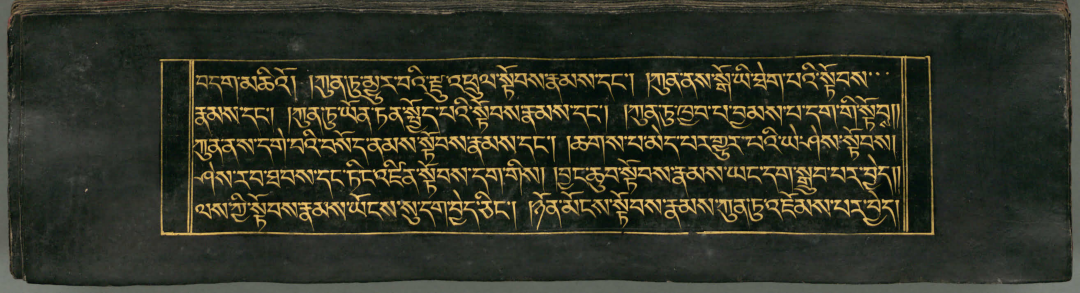 བདག་མཆིའོ། །ཀུན་ཏུ་མྱུར་བའི་རྫུ་འཕྲུལ་སྟོབས་རྣམས་དང༌། །ཀུན་ནས་སྒོ་ཡི་ཐེག་པའི་སྟོབས་
རྣམས་དང༌། །ཀུན་ཏུ་ཡོན་ཏན་སྤྱོད་པའི་སྟོབས་རྣམས་དང༌། །ཀུན་ཏུ་ཁྱབ་པ་བྱམས་པ་དག་གི་སྟོབས།།
ཀུན་ནས་དགེ་བའི་བསོད་ནམས་སྟོབས་རྣམས་དང༌། །ཆགས་པ་མེད་པར་གྱུར་པའི་ཡེ་ཤེས་སྟོབས།
ཤེས་རབ་ཐབས་དང་ཏིང་འཛིན་སྟོབས་དག་གིས། །བྱང་ཆུབ་སྟོབས་རྣམས་ཡང་དག་སྒྲུབ་པར་བྱེད།།
ལས་ཀྱི་སྟོབས་རྣམས་ཡོངས་སུ་དག་བྱེད་ཅིང༌། །ཉོན་མོངས་སྟོབས་རྣམས་ཀུན་ཏུ་འཇོམས་པར་བྱེད།